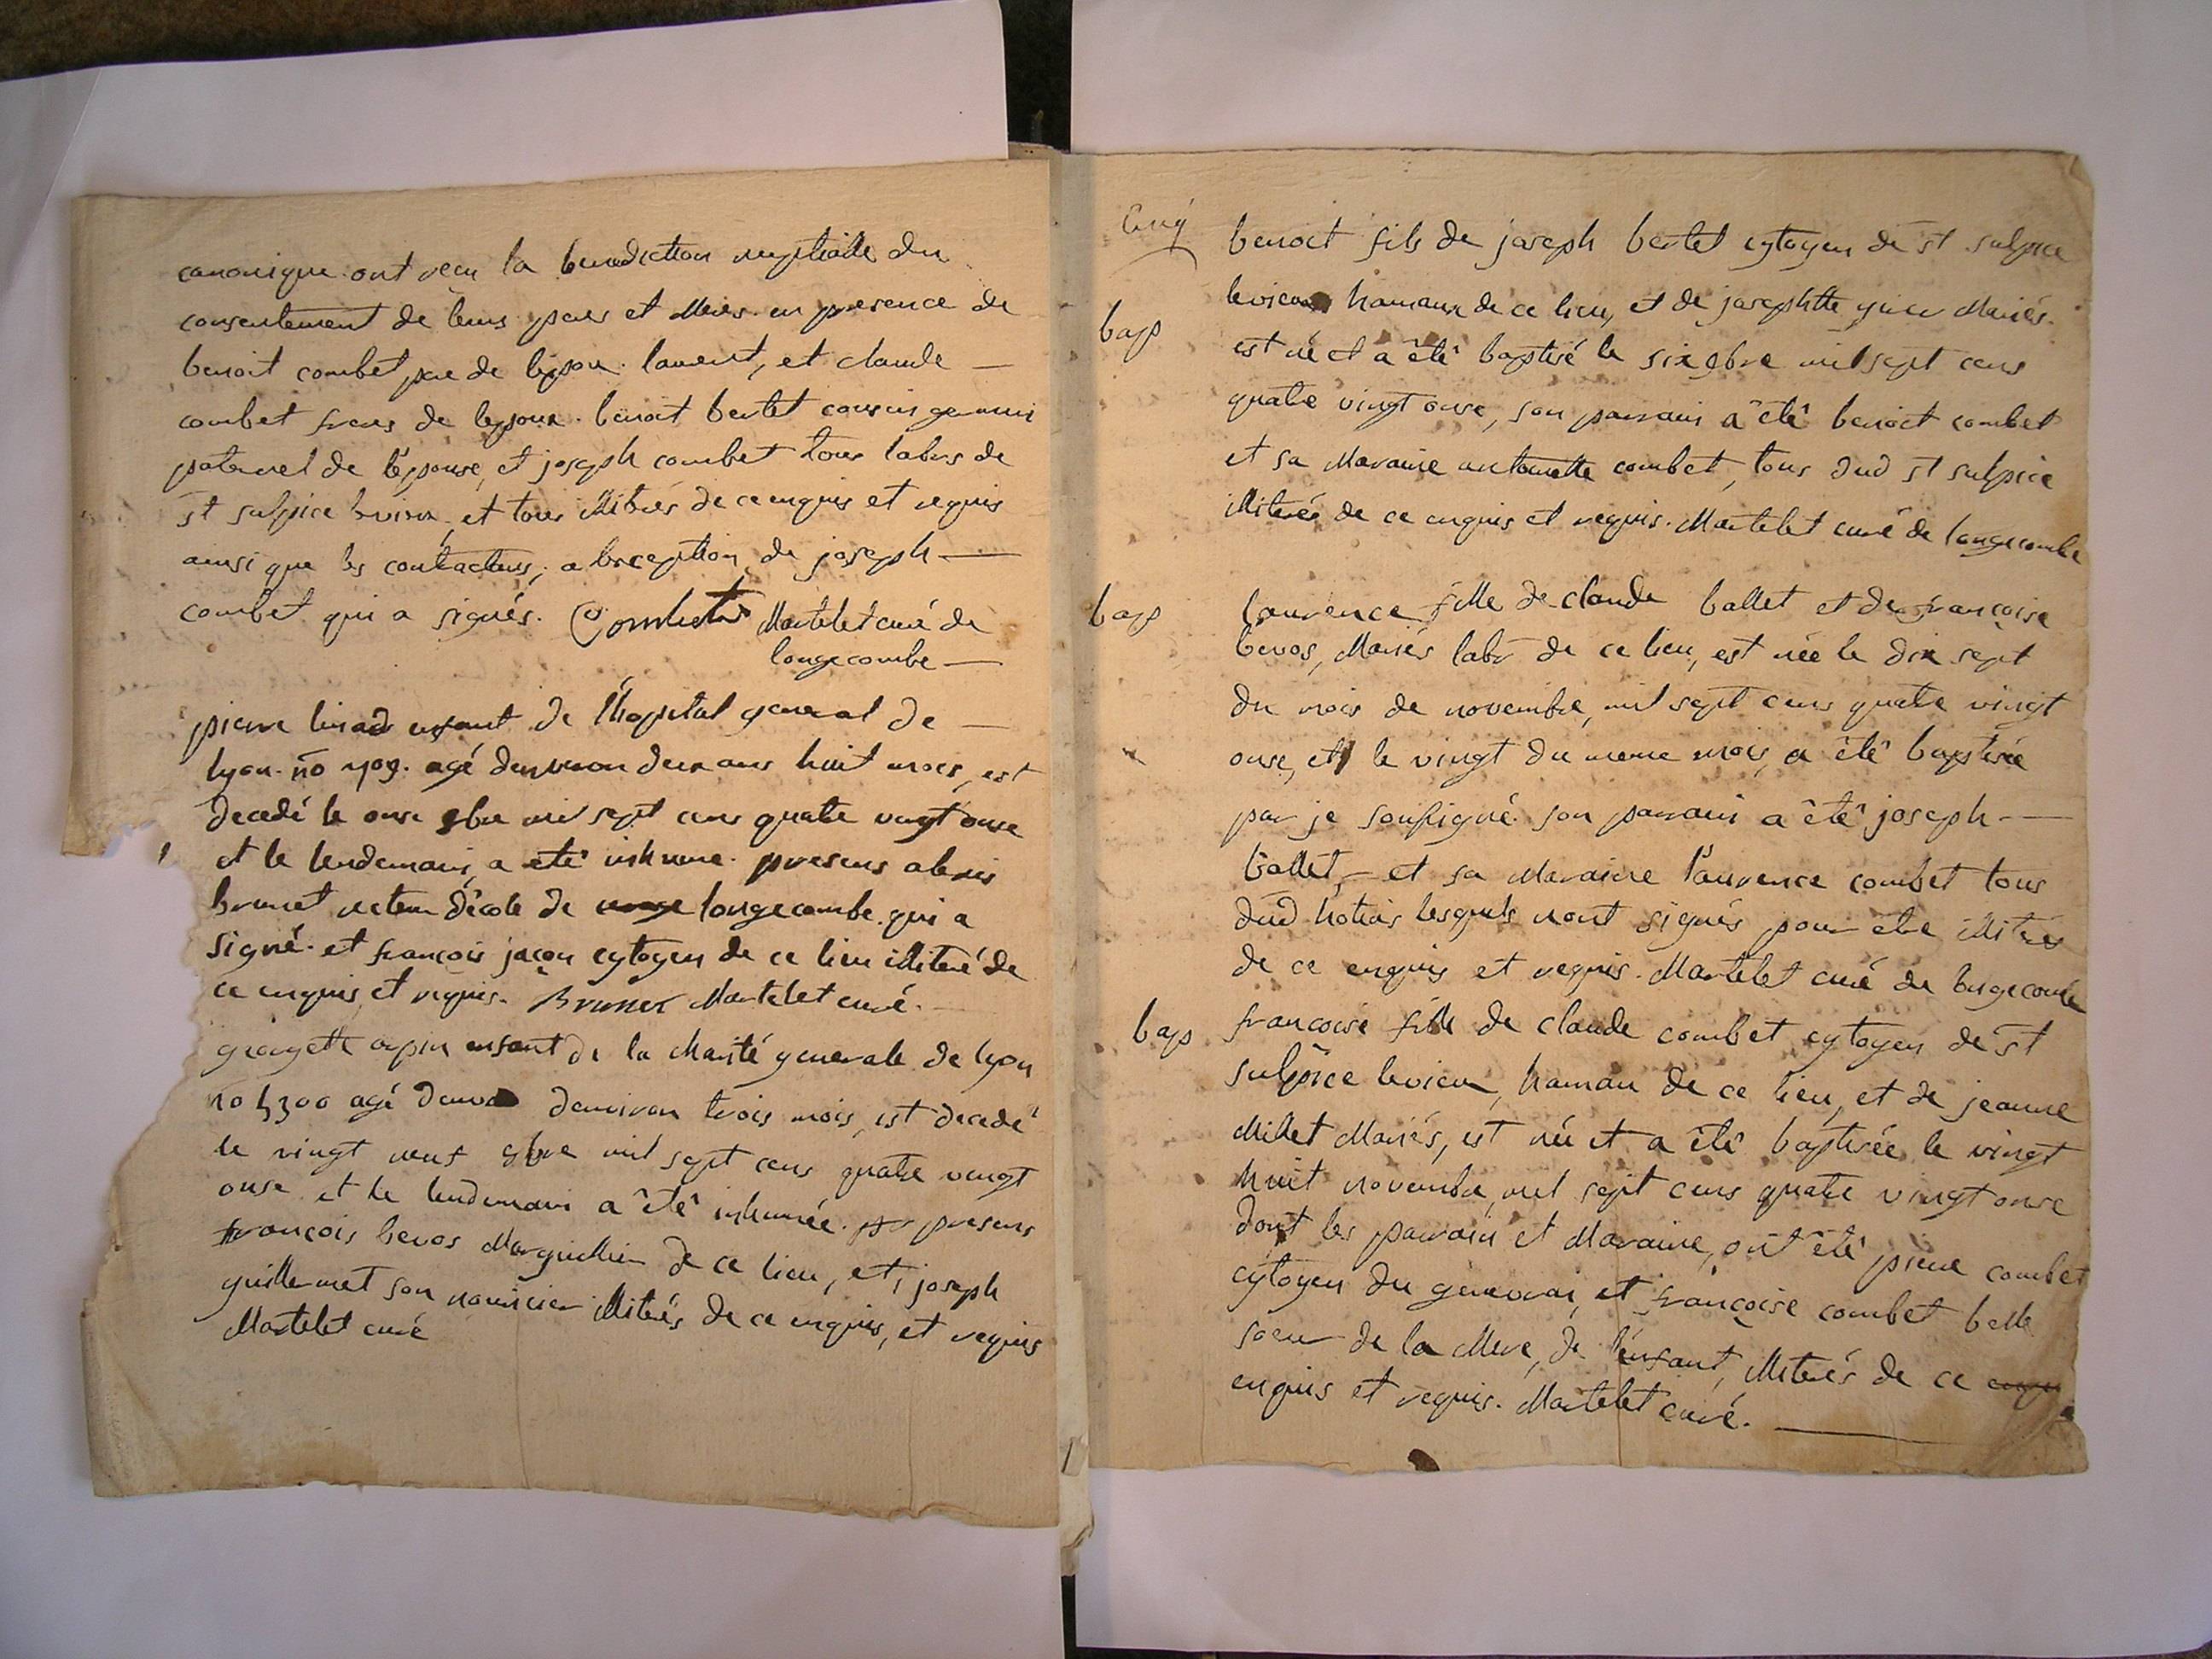 canonique ont reçu la benediction nuptialle du
consentement de leurs peres et Meres. en presence de
benoit combet pere de lepoux. laurent, et claude —
combet freres de lepoux. benoit bertet cousin germain
paternel de l'épouse, et joseph combet tous labrs de
st sulpice levieux, et tous illitérés de ce enquis et requis
ainsi que les contractans, a lexception de joseph —
combet qui a signés. Combet Martelet curé de
longecombe —
pierre enfant de l'hopital general de —
lyon. no agé denviron deux ans huit mois, est
decedé le onse 9bre mil sept cens quatre vingt onse
et le lendemain, a eté inhumé. presens alexis
brunet recteur d'école de longecombe. qui a
signé. et françois jaçon cytoyen de ce lieu illiteré de
ce enquis, et requis. Brunet Martelet curé.
arpin enfant de la charité generale de lyon
no agé denviron trois mois, est decedé
le vingt neuf 9bre mil sept cens quatre vingt
onse et le lendemain a êtê inhumée. presens
françois bevos Marguillier de ce lieu, et joseph
guillermet son nouricier illiterés de ce enquis, et requis
Martelet curé
benoit fils de joseph bertet cytoyen de st sulpice
levieux hamaux de ce lieu, et de josephtte Mariés.
bap
est né et a êtê baptisé le six 9bre mil sept cens
quatre vingt onse, son parrain a êtê benoit combet
et sa Maraine antoinette combet, tous dud st sulpice
illiterés de ce enquis et requis. Martelet curé de longecombe
bap laurence fille de claude ballet et de françoise
bevos, Mariés labr de ce lieu, est née le dix sept
du mois de novembre, mil sept cens quatre vingt
onse, et le vingt du meme mois, a êtê baptisée
par je soussigné. son parrain a êtê joseph —
ballet, — et sa Maraine laurence combet tous
dud lesquels nont signés pour etre illiterés
de ce enquis et requis. Martelet curé de longecombe
bap francoise fille de claude combet cytoyen de st
sulpice levieux, hamau de ce lieu, et de jeanne
Millet Mariés, est née et a êtê baptisée le vingt
huit novembre, mil sept cens quatre vingt onse
dont les parrain et Maraine, ont êtê pierre combet
cytoyen du genevrai, et françoise combet belle
soeur de la Mere, de l'enfant, illiterés de ce
enquis et requis. Martelet curé. —